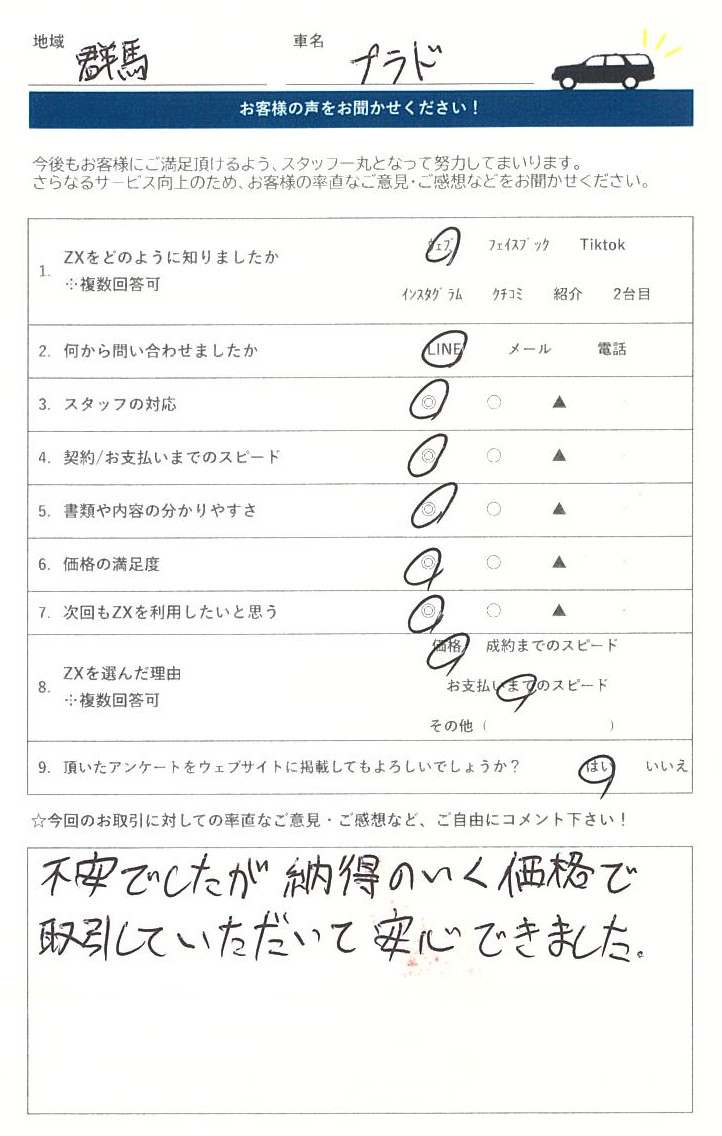 地域 群馬 車名 プラド
お客様の声をお聞かせください！
今後もお客様にご満足頂けるよう、スタッフ一丸となって努力してまいります。
さらなるサービス向上のため、お客様の率直なご意見・ご感想などをお聞かせください。
1. ZXをどのように知りましたか ウェブ フェイスブック Tiktok
※複数回答可 インスタグラム クチコミ 紹介 2台目
2. 何から問い合わせましたか LINE メール 電話
3. スタッフの対応 ◎ ○ ▲
4. 契約/お支払いまでのスピード ◎ ○ ▲
5. 書類や内容の分かりやすさ ◎ ○ ▲
6. 価格の満足度 ◎ ○ ▲
7. 次回もZXを利用したいと思う ◎ ○ ▲
8. ZXを選んだ理由 価格 成約までのスピード
※複数回答可 お支払いまでのスピード
その他（ ）
9. 頂いたアンケートをウェブサイトに掲載してもよろしいでしょうか？ はい いいえ
☆今回のお取引に対しての率直なご意見・ご感想など、ご自由にコメント下さい！
不安でしたが納得のいく価格で
取引していただいて安心できました。